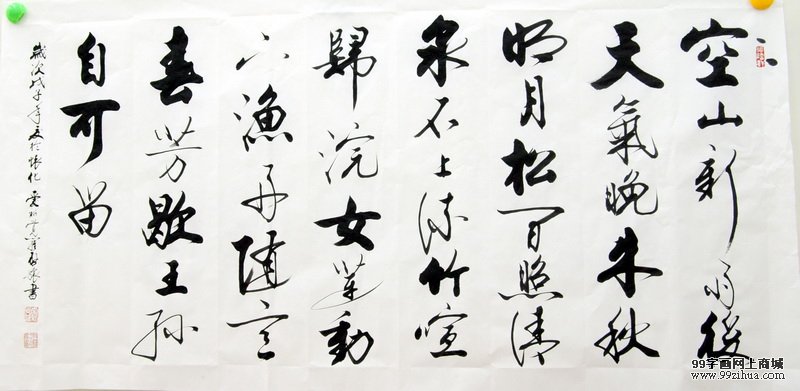 空山新雨後
天氣晚来秋
明月松间照清
泉石上流竹喧
歸浣女蓮動
下漁舟随意
春芳歇王孙
自可留
歲次戊子年夏於
99字画网上商城
www.99zihua.com